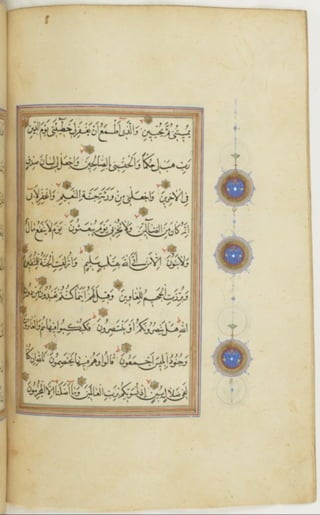 يُمِيتُنِي ثُمَّ يُحْيِينِ وَالَّذِي أَطْمَعُ أَنْ يَغْفِرَ لِي خَطِيئَتِي يَوْمَ الدِّينِ
رَبِّ هَبْ لِي حُكْمًا وَأَلْحِقْنِي بِالصَّالِحِينَ وَاجْعَلْ لِي لِسَانَ صِدْقٍ
فِي الْآخِرِينَ وَاجْعَلْنِي مِنْ وَرَثَةِ جَنَّةِ النَّعِيمِ وَاغْفِرْ لِأَبِي
إِنَّهُ كَانَ مِنَ الضَّالِّينَ وَلَا تُخْزِنِي يَوْمَ يُبْعَثُونَ يَوْمَ لَا يَنْفَعُ مَالٌ
وَلَا بَنُونَ إِلَّا مَنْ أَتَى اللَّهَ بِقَلْبٍ سَلِيمٍ وَأُزْلِفَتِ الْجَنَّةُ لِلْمُتَّقِينَ
وَبُرِّزَتِ الْجَحِيمُ لِلْغَاوِينَ وَقِيلَ لَهُمْ أَيْنَمَا كُنْتُمْ تَعْبُدُونَ مِنْ دُونِ
اللَّهِ هَلْ يَنْصُرُونَكُمْ أَوْ يَنْتَصِرُونَ فَكُبْكِبُوا فِيهَا هُمْ وَالْغَاوُونَ
وَجُنُودُ إِبْلِيسَ أَجْمَعُونَ قَالُوا وَهُمْ فِيهَا يَخْتَصِمُونَ تَاللَّهِ إِنْ كُنَّا
لَفِي ضَلَالٍ مُبِينٍ إِذْ نُسَوِّيكُمْ بِرَبِّ الْعَالَمِينَ وَمَا أَضَلَّنَا إِلَّا الْمُجْرِمُونَ